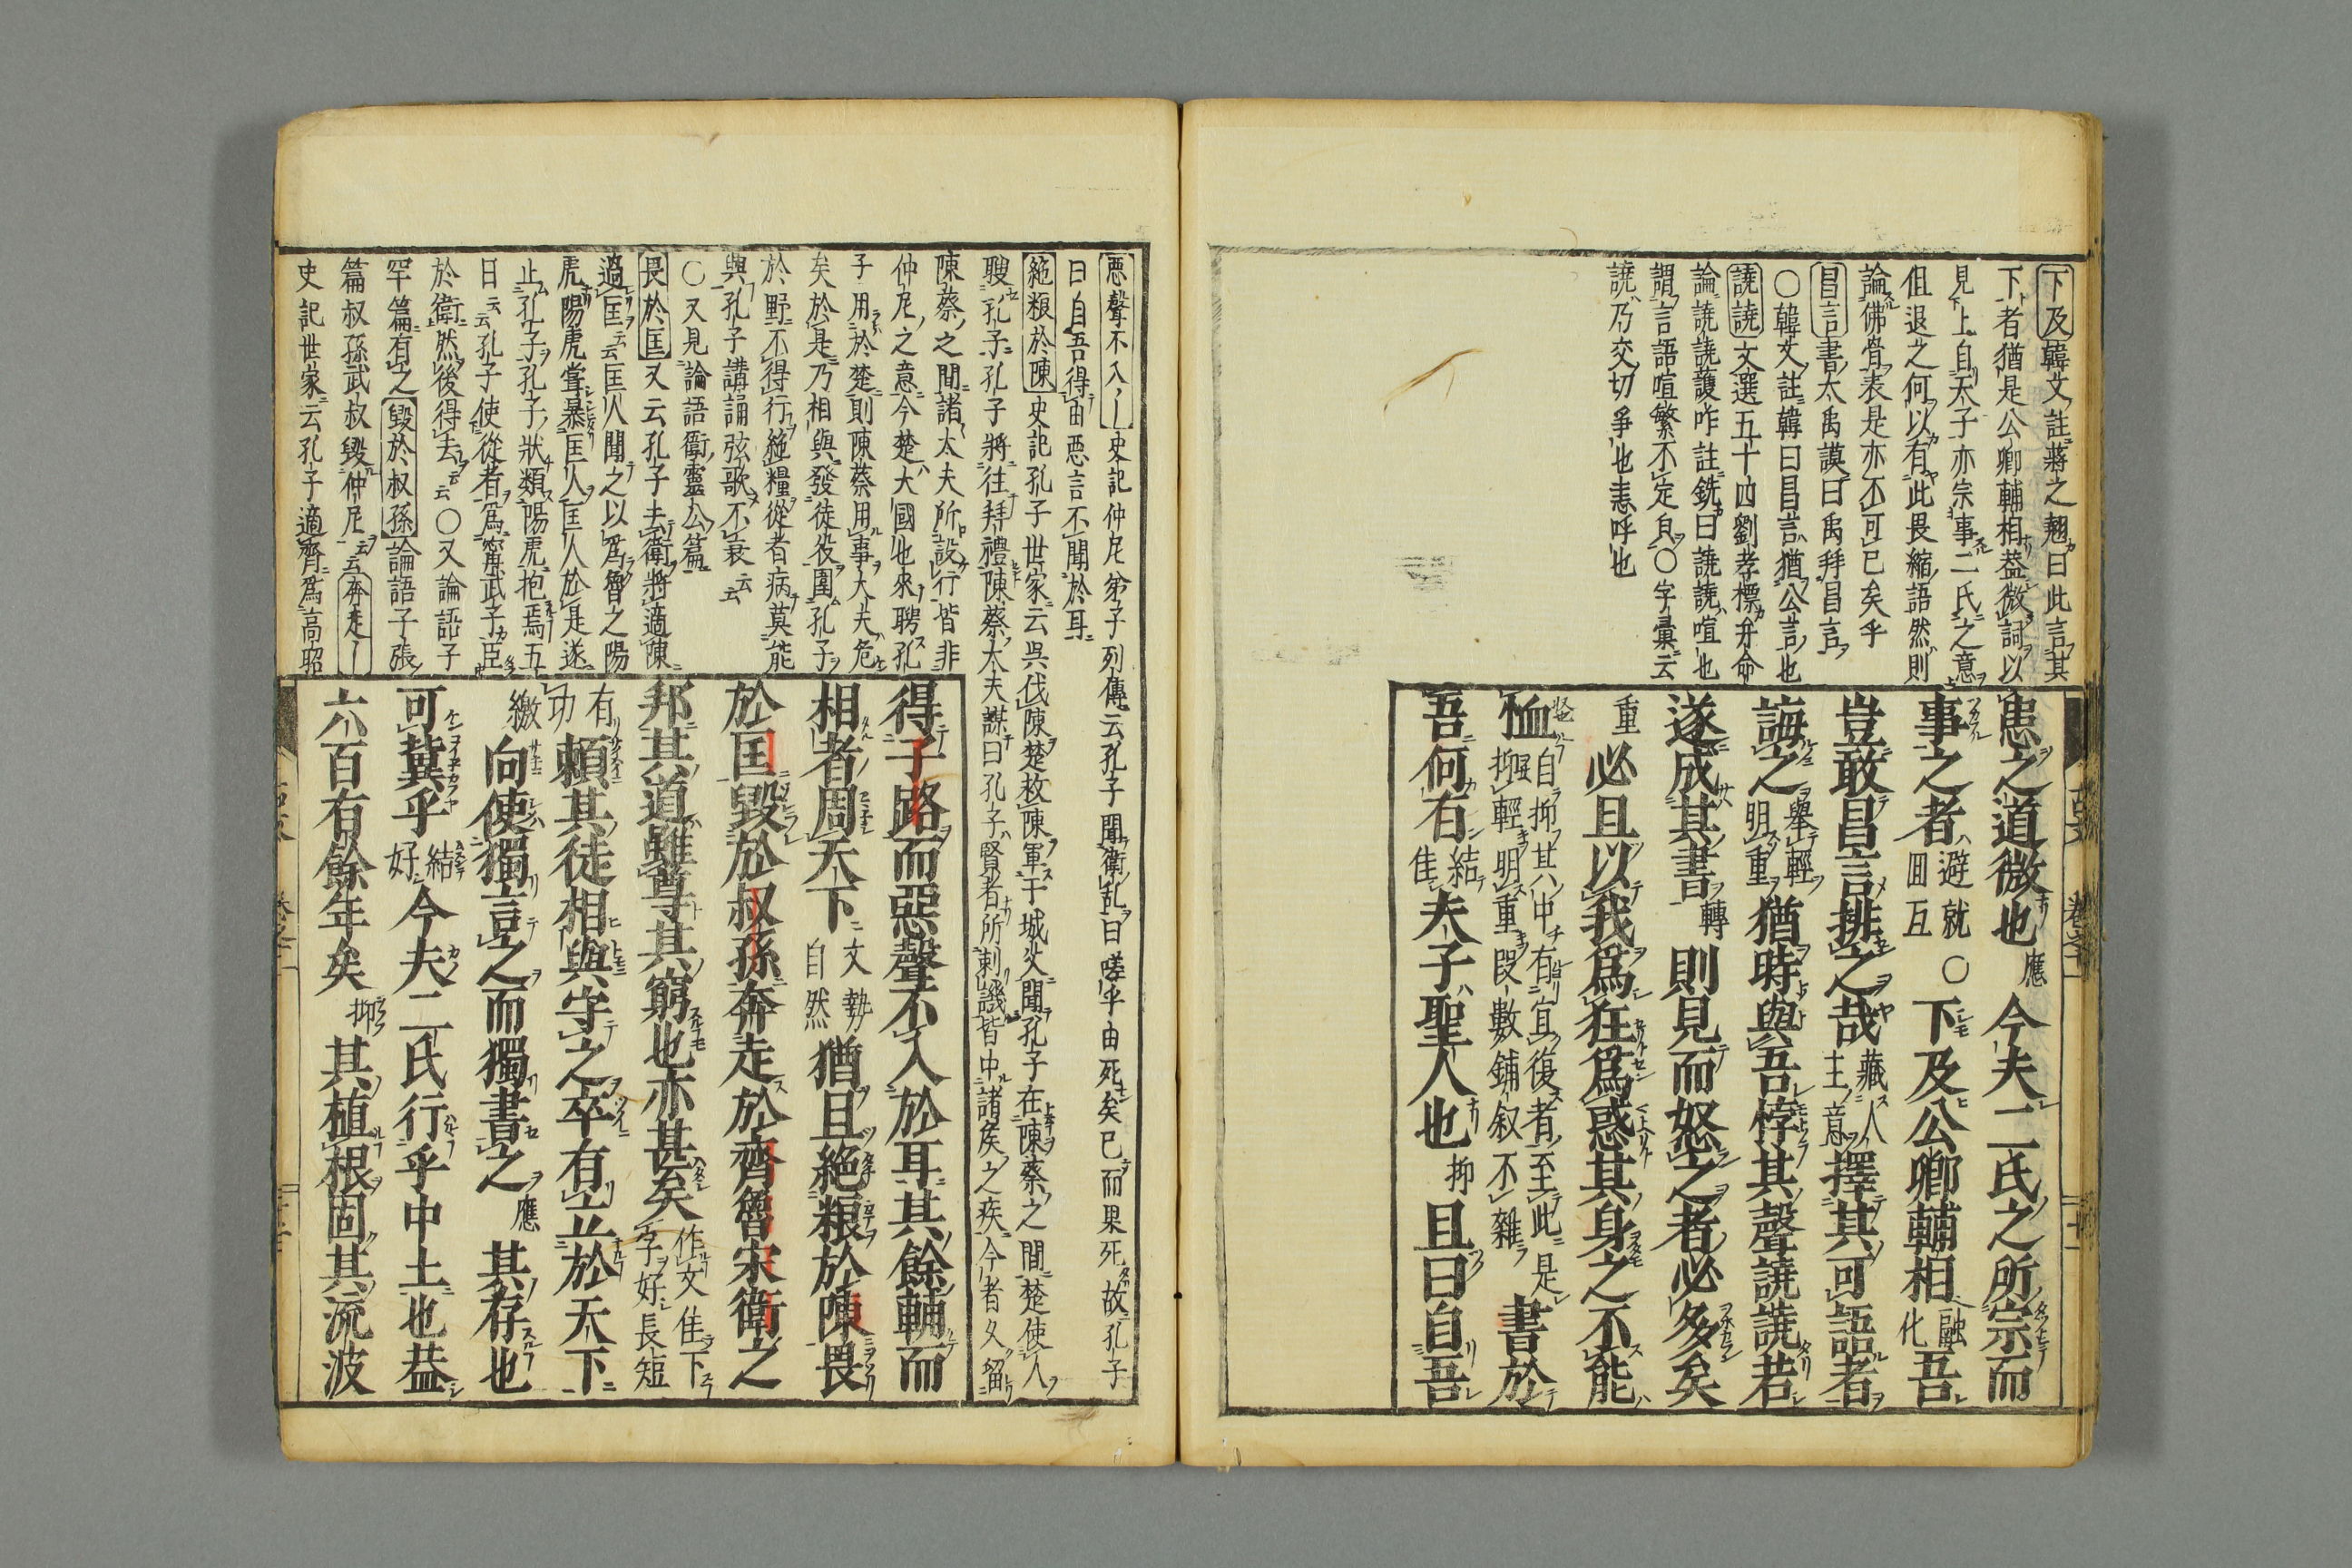 下及韓文註蔣之翹曰此言其
下者猶是公卿輔相蓋微詞以
見上自天子亦宗事二氏之意
但退之何以有此畏縮語然則
論佛骨表是亦不可已矣乎
昌言書大禹謨曰禹拜昌言
〇韓文註韓曰昌言猶公言也
譊譊文選五十四劉孝標弁命
論譊譊讙咋註銑曰譊譊喧也
謂言語喧繁不定皃〇字彙云
譊乃交切爭也恚呼也
患之道微也應今夫二氏之所宗而
事之者避就回互〇下及公卿輔相融化吾
豈敢昌言排之哉藏人主意擇其可語者
誨之舉輕明重猶時與吾悖其聲譊譊若
遂成其書轉則見而怒之者必多矣
重必且以我爲狂爲惑其身之不能
恤自抑其中有宜復者至此是抑輕明重段數鋪叙不雜書於
吾何有結佳夫子聖人也抑且曰自吾
古文
惡聲不入｜史記仲尼弟子列傳云孔子聞衛乱曰嗟乎由死矣已而果死故孔子
曰自吾得由惡言不聞於耳
絶粮於陳史記孔子世家云吳伐陳楚救陳軍于城父聞孔子在陳蔡之間楚使人
聘孔子孔子將往拜禮陳蔡大夫謀曰孔子賢者所刺譏皆中諸矦之疾今者久留
陳蔡之間諸大夫所設行皆非
仲尼之意今楚大國也來聘孔
子用於楚則陳蔡用事大夫危
矣於是乃相與發徒役圍孔子
於野不得行絶糧從者病莫能
與孔子講誦弦歌不衰云云
〇又見論語衛靈公篇
畏於匡又云孔子去衛將適陳
過匡云云匡人聞之以爲魯之陽
虎陽虎甞暴匡人匡人於是遂
止孔子孔子狀類陽虎拘焉五
日云云孔子使從者爲甯武子臣
於衛然後得去云云〇又論語子
罕篇有之毀於叔孫論語子張
篇叔孫武叔毀仲尼云云奔走｜
史記世家云孔子適齊爲高昭
得子路而惡聲不入於耳其餘輔而
相者周天下文勢自然猶且絶粮於陳畏
於匡毀於叔孫奔走於齊魯宋衛之
邦其道雖尊其窮也亦甚矣作文佳下字好長短
有功頼其徒相與守之卒有立於天下
繳向使獨言之而獨書之應其存也
可冀乎結好今夫二氏行乎中土也蓋
六百有餘年矣抑其植根固其流波